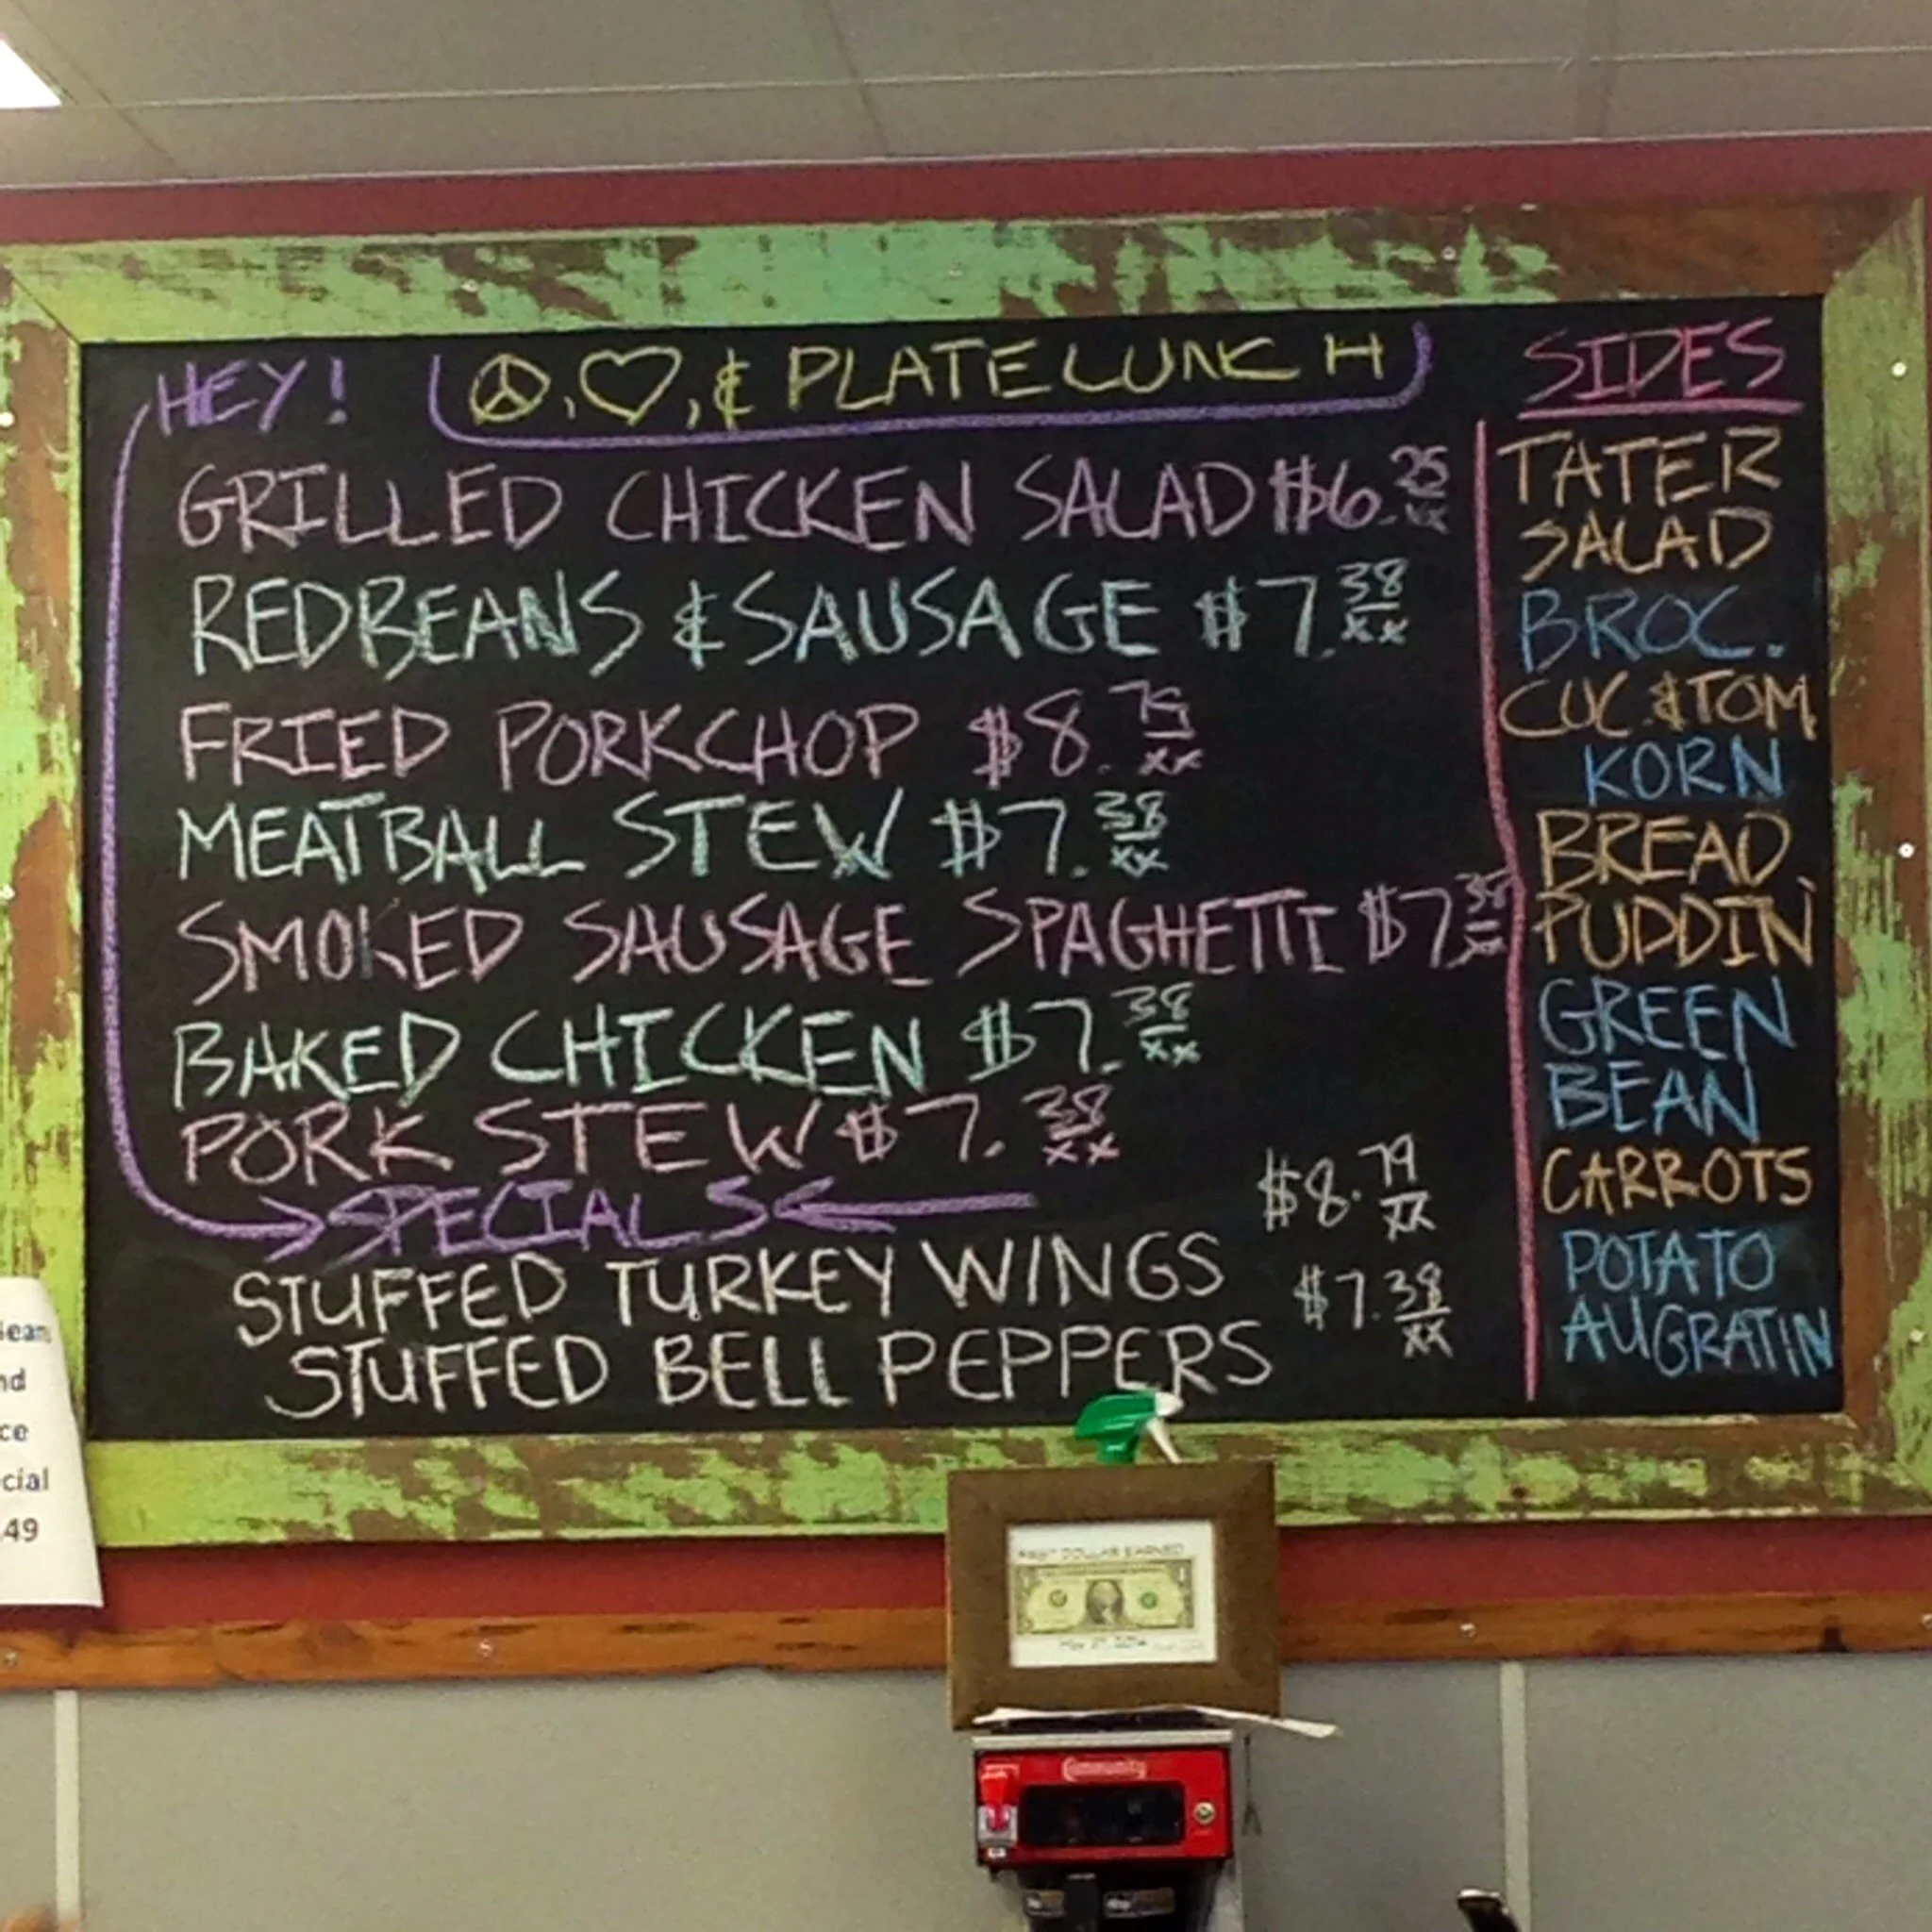 HEY!
☮, ♡, & PLATE LUNCH
GRILLED CHICKEN SALAD $6.25
REDBEANS & SAUSAGE $7.38/xx
FRIED PORKCHOP $8.75/xx
MEATBALL STEW $7.38/xx
SMOKED SAUSAGE SPAGHETTI $7.38/xx
BAKED CHICKEN $7.38/xx
PORK STEW $7.38/xx
SPECIALS
STUFFED TURKEY WINGS $8.79/xx
STUFFED BELL PEPPERS $7.38/xx
SIDES
TATER
SALAD
BROC.
CUC. & TOM.
KORN
BREAD
PUDDIN'
GREEN
BEAN
CARROTS
POTATO
AUGRATIN
nd
ce
cial
.49
FIRST DOLLAR EARNED
Community